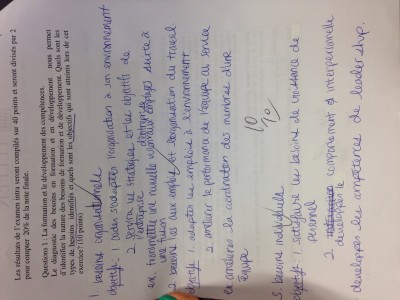 Les résultats de l'examen intra seront compilés sur 40 points et seront divisés par 2
pour compter 20% de la note finale.
Questions 1. La formation et le développement des compétences.
Le diagnostic des besoins en formation et en développement nous permet
d'identifier la nature des besoins de formation et de développement. Quels sont les
types de besoins identifiés et quels sont les objectifs qui sont atteints lors de cet
exercice? (10 points)
1 besoins organisationnels
objectifs: 1 aider s'adapter l'organisation à un environnement
2 servir les stratégies et les objectifs de
l'entreprise
en transmettant la nouvelle vision aux employés suite à
une fusion
2. besoins liés aux emplois et l'organisation du travail
objectifs: 1 adapter les emplois à l'environnement
2 améliorer la performance de l'équipe au service
en améliorer la coordination des membres d'une
équipe
10/10
3 besoins individuels
objectifs: 1 satisfaire les besoins de croissance de
personnel
2. développer le comportement interpersonnelle
- développer les compétences de leadership.